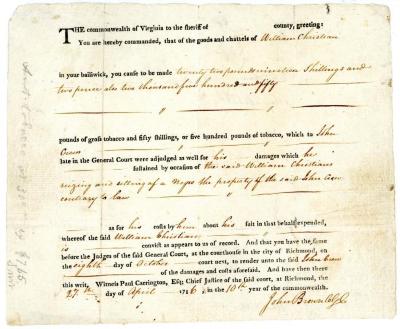 THE commonwealth of Virginia to the sheriff of county, greeting:
You are hereby commanded, that of the goods and chattels of William Christian
in your bailiwick, you cause to be made twenty two pounds nineteen Shillings and
two pence also two thousand five hundred and fifty
pounds of gross tobacco and fifty shillings, or five hundred pounds of tobacco, which to John
Crew late in the General Court were adjudged as well for his damages which he
sustained by occasion of the said William Christians
seizing and selling of a Negro the property of the said John Crew
contrary to law
as for his costs by him about his suit in that behalf expended,
whereof the said William Christian
is convict as appears to us of record. And that you have the same
before the Judges of the said General Court, at the courthouse in the city of Richmond, on
the eighth day of October court next, to render unto the said John Crew
of the damages and costs aforesaid. And have then there
this writ. Witness Paul Carrington, Esq; Chief Justice of the said court at Richmond, the
27th day of April 1786 in the 10th year of the commonwealth.
John Brown